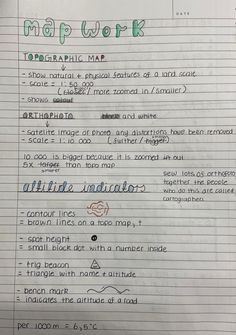 DATE
map work
TOPOGRAPHIC MAP
- show natural + physical features of a land scale
- scale = 1 : 50 000
(closer/ more zoomed in / smaller)
- shows
ORTHOPHOTO black and white
- satelite image or photo any distortions have been removed
- scale = 1 : 10 000 (further / bigger)
10 000 is bigger because it is zoomed out
5x larger than topo map
smaller
sew lots of orthophoto
together the people
who do this are called
cartographers
altitude indicators
- contour lines
= brown lines on a topo map, t
- spot height
= small black dot with a number inside
- trig beacon
= triangle with name + altitude
- bench mark
= indicates the altitude of a road
per 1000m = 6,5°C